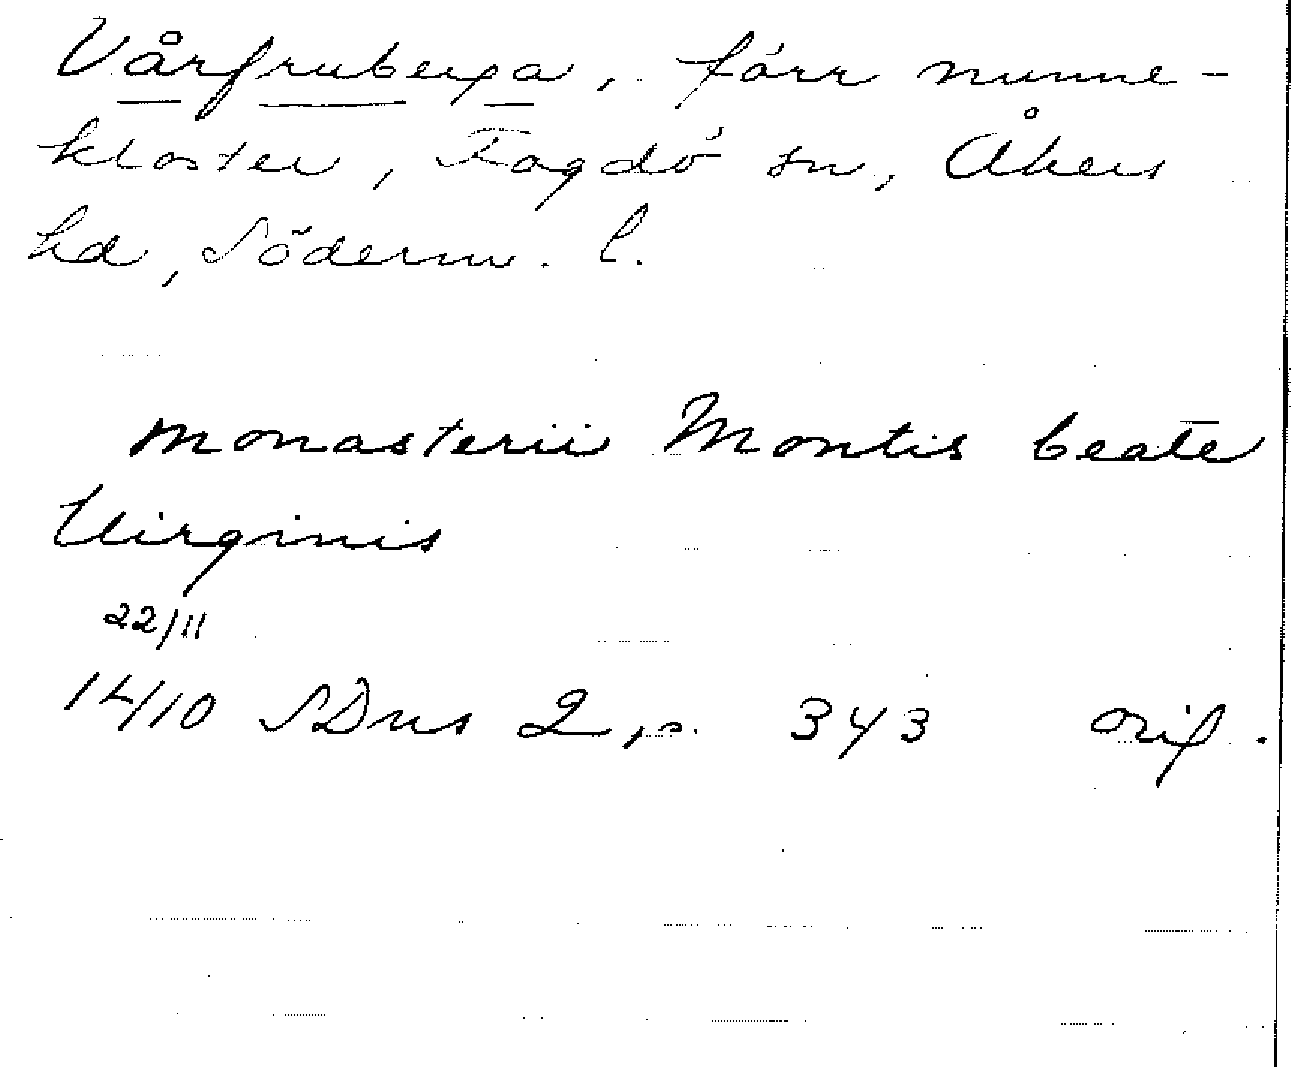 Vårfruberga, förr nunne-
kloster, Fogdö sn, Åkers
hd, Söderm. l.
monasterii Montis beate
Uirginis
22/11
14/10 SDns 2, s. 343 orig.